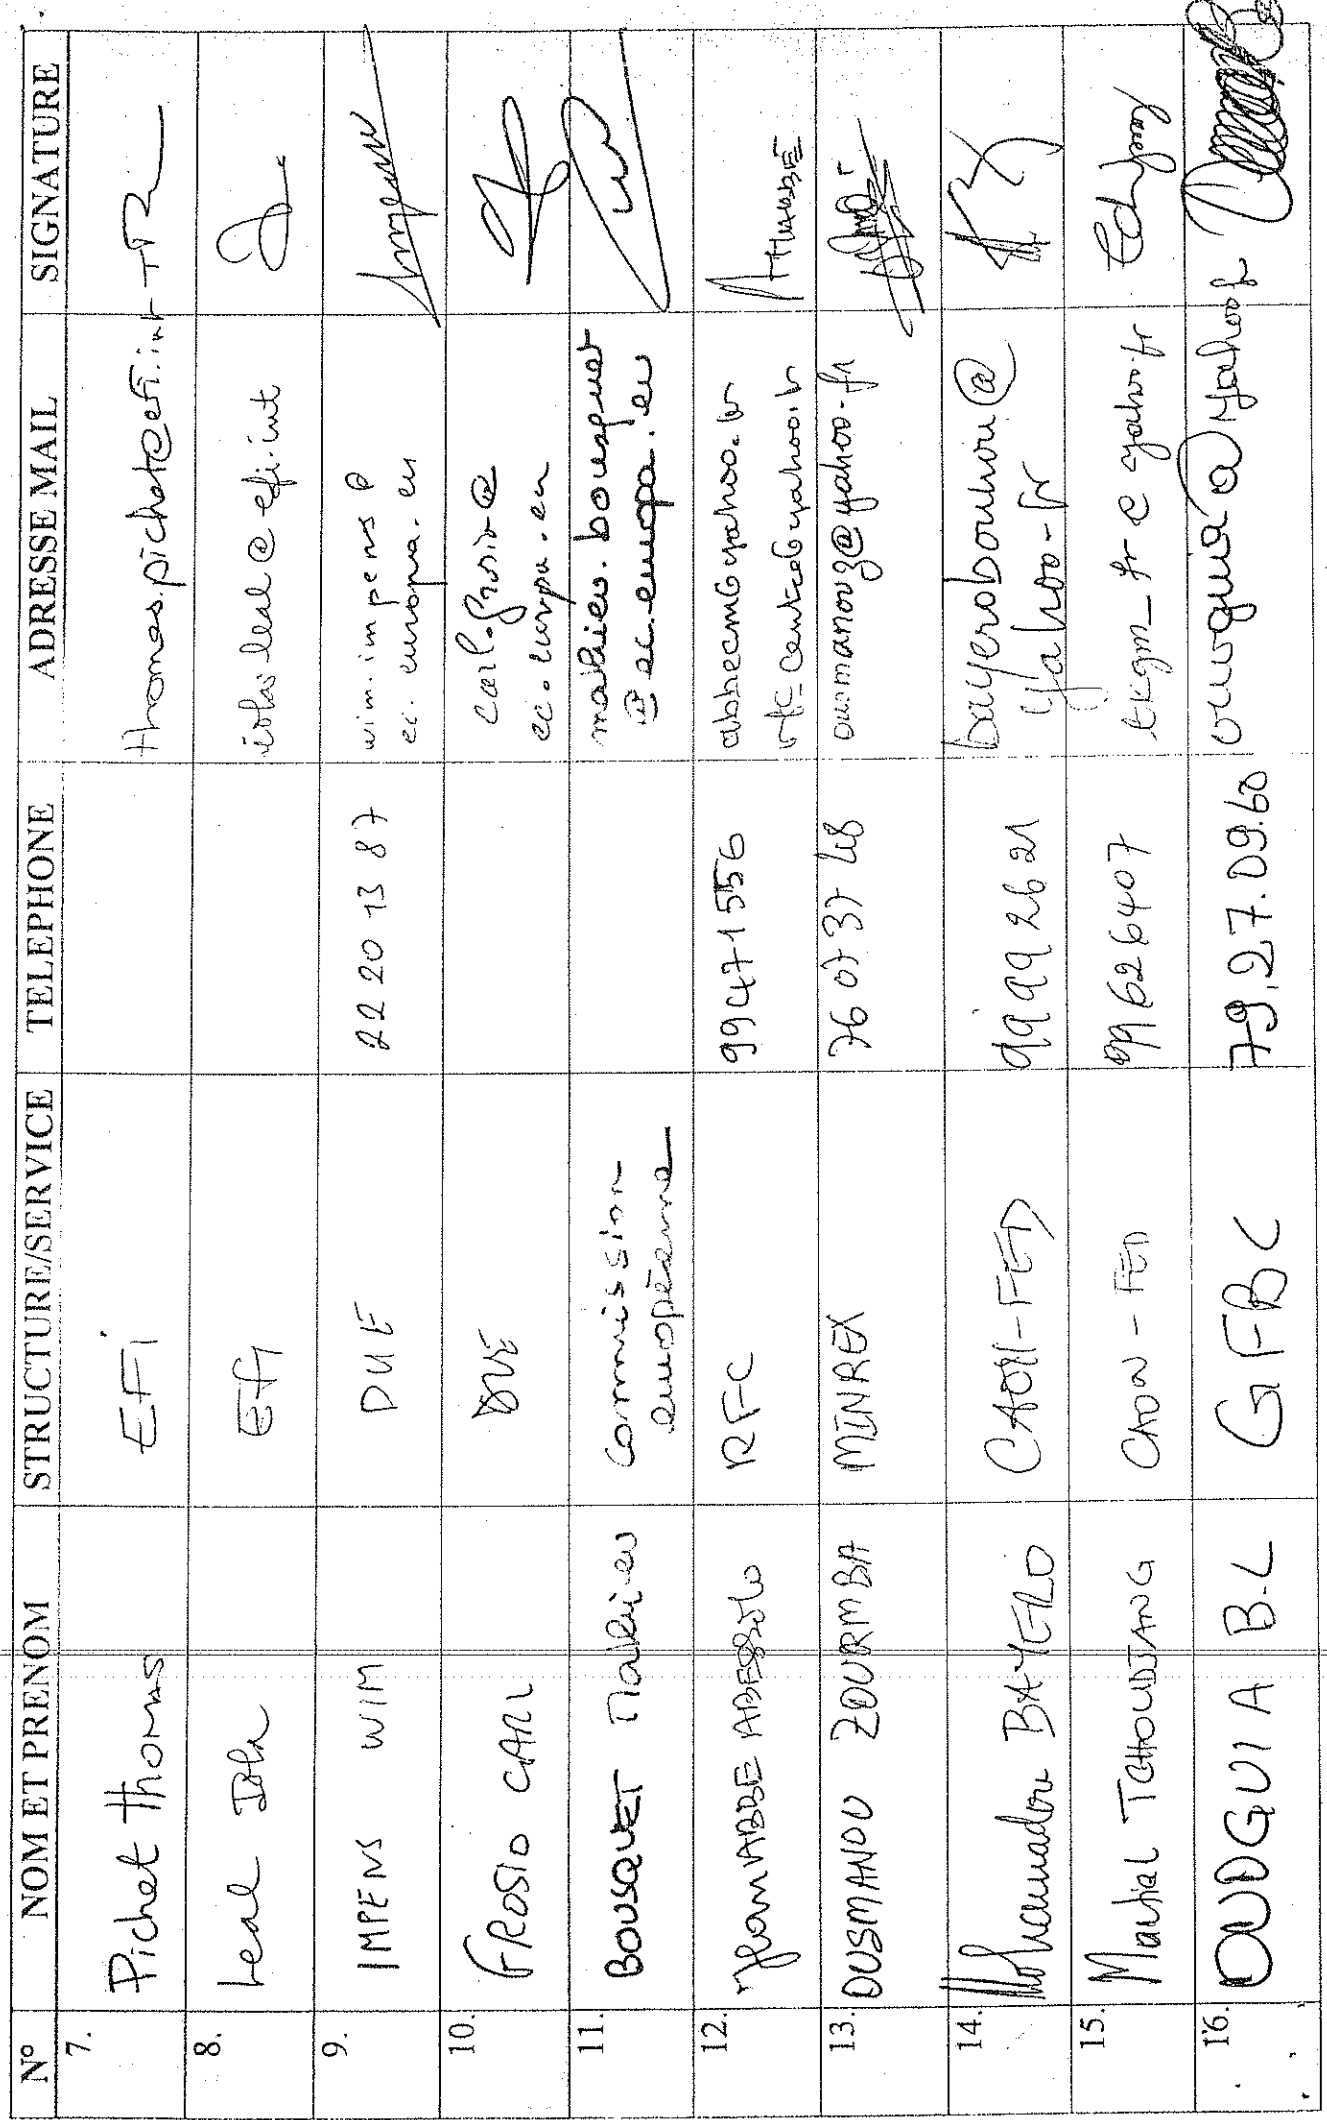 N° NOM ET PRENOM STRUCTURE/SERVICE TELEPHONE ADRESSE MAIL SIGNATURE
7. Pichet Thomas EFI thomas.pichet@efi.int
8. Leal Iola EFI iola.leal@efi.int
9. IMPENS WIM DUE 22 20 13 87 wim.impens@
ec.europa.eu
10. FROSIO CARL DUE carl.frosio@
ec.europa.eu
11. BOUSQUET Mathieu Commission mathieu.bousquet
européenne @ec.europa.eu
12. ABBE ABESSOLO RFC 99471556
13. OUSMANOU ZOURMBA MINREX 76 07 37 48 ousmanouz@yahoo.fr
14. Mohamadou BAYERO CAON-FED 99 99 26 21 bayerobouhou@
yahoo.fr
15. Martial TCHOUDJANG CAON-FED 99626407 tkgm_fr@yahoo.fr
16. OUOGUIA B.L GFBC 79.27.09.60